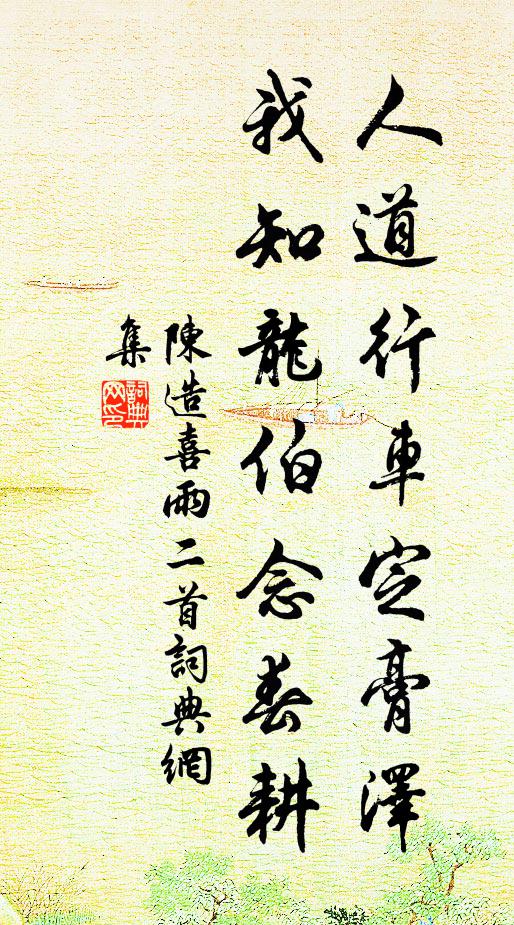 人道行車定膏澤
我知龍伯念春耕
陳造喜雨二首詞典網
集
詞典
网印